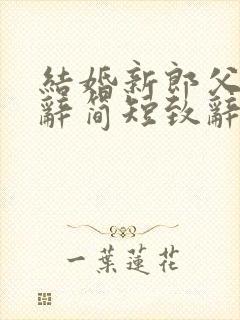 結婚新郎父
辭简短致辭
一葉蓮花